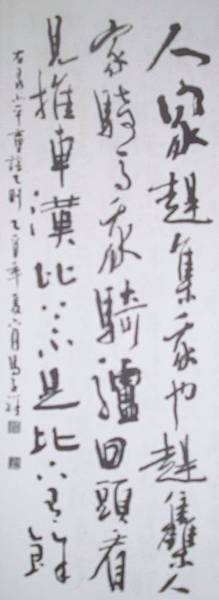 人家趕集我也趕集人
家騎馬我騎驢回頭看
見推車漢比上不足比下有餘